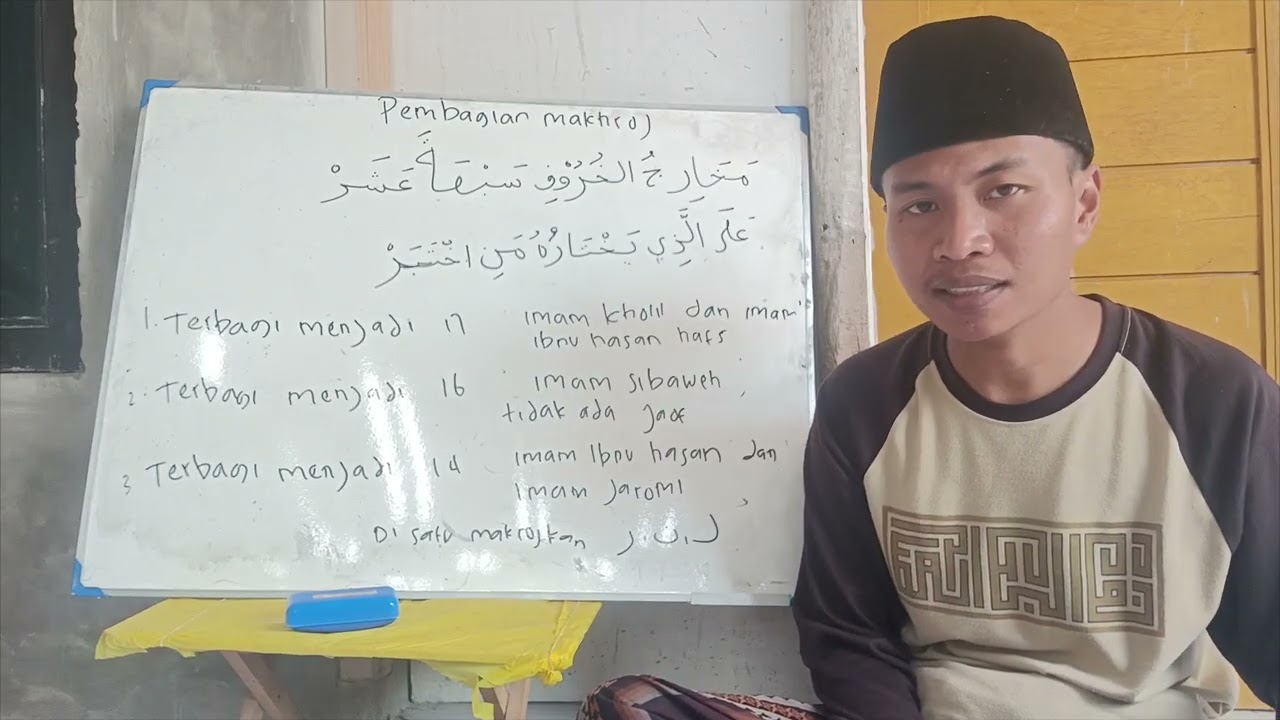 Pembagian makhroj
مَخَارِجُ الْحُرُوْفِ سَبْعَةَ عَشَرْ
عَلَى الَّذِي يَخْتَارُهُ مَنِ اخْتَبَرْ
1. Terbagi menjadi 17 imam kholil dan imam
ibnu hasan hafs
2. Terbagi menjadi 16 imam sibaweh
tidak ada jaof
3 Terbagi menjadi 14 imam ibnu hasan dan
imam jaromi
Di satu makrojkan ل ن ر